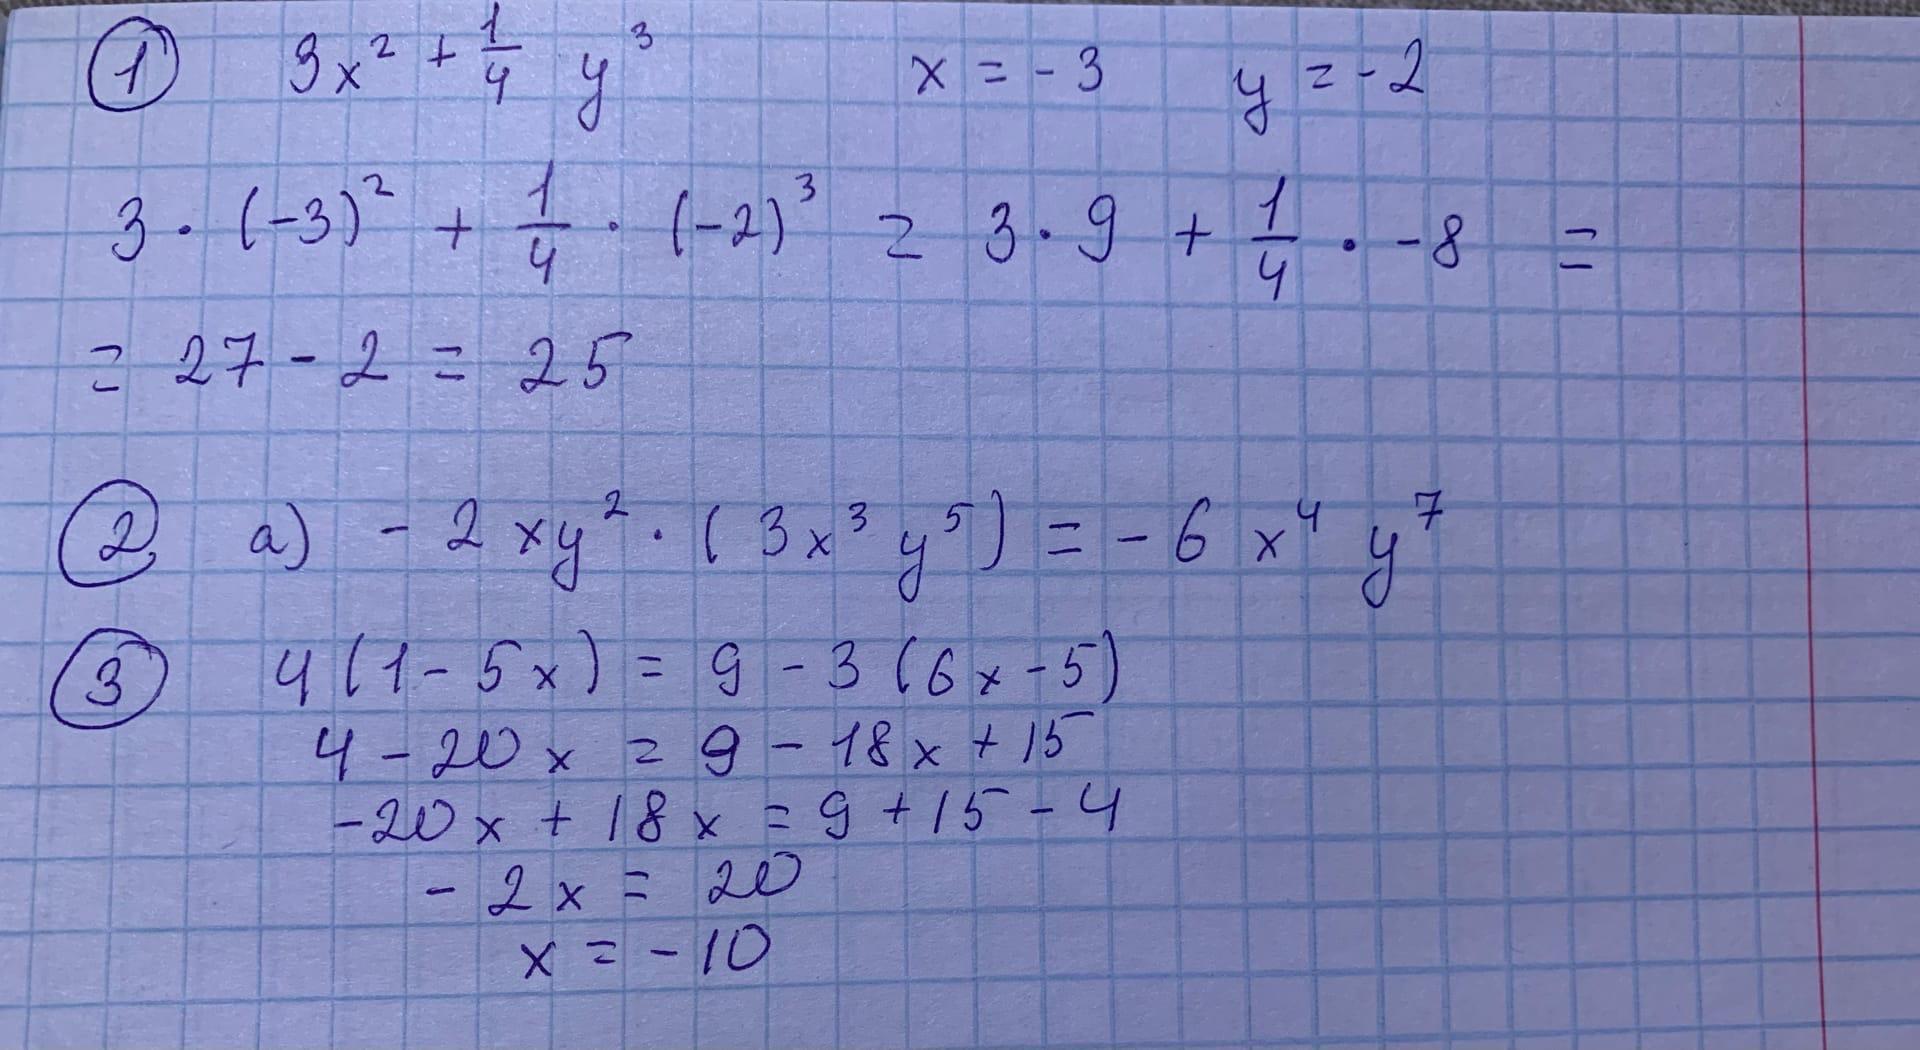 ① 3x² + 1/4 y³ x = -3 y = -2
3 · (-3)² + 1/4 · (-2)³ = 3 · 9 + 1/4 · -8 =
= 27 - 2 = 25
② a) - 2xy² · (3x³y⁵) = -6x⁴y⁷
③ 4(1 - 5x) = 9 - 3(6x - 5)
4 - 20x = 9 - 18x + 15
-20x + 18x = 9 + 15 - 4
- 2x = 20
x = -10